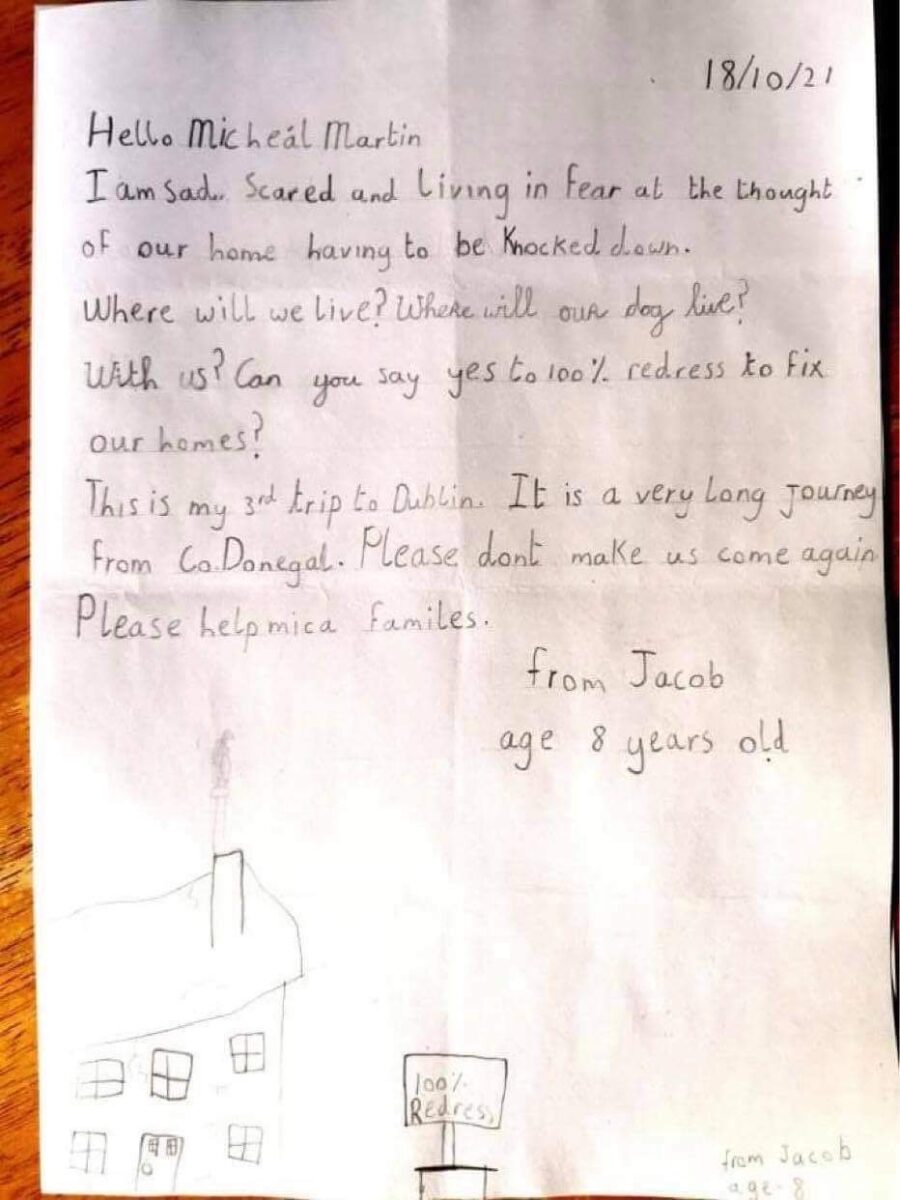 18/10/21
Hello Micheál Martin
I am sad.. Scared and Living in Fear at the thought
of our home having to be Knocked down.
Where will we live? Where will our dog live?
With us? Can you say yes to 100% redress to fix
our homes?
This is my 3rd trip to Dublin. It is a very Long journey
from Co.Donegal. Please dont make us come again
Please help mica familes.
from Jacob
age 8 years old
100%
Redress
from Jacob
age 8